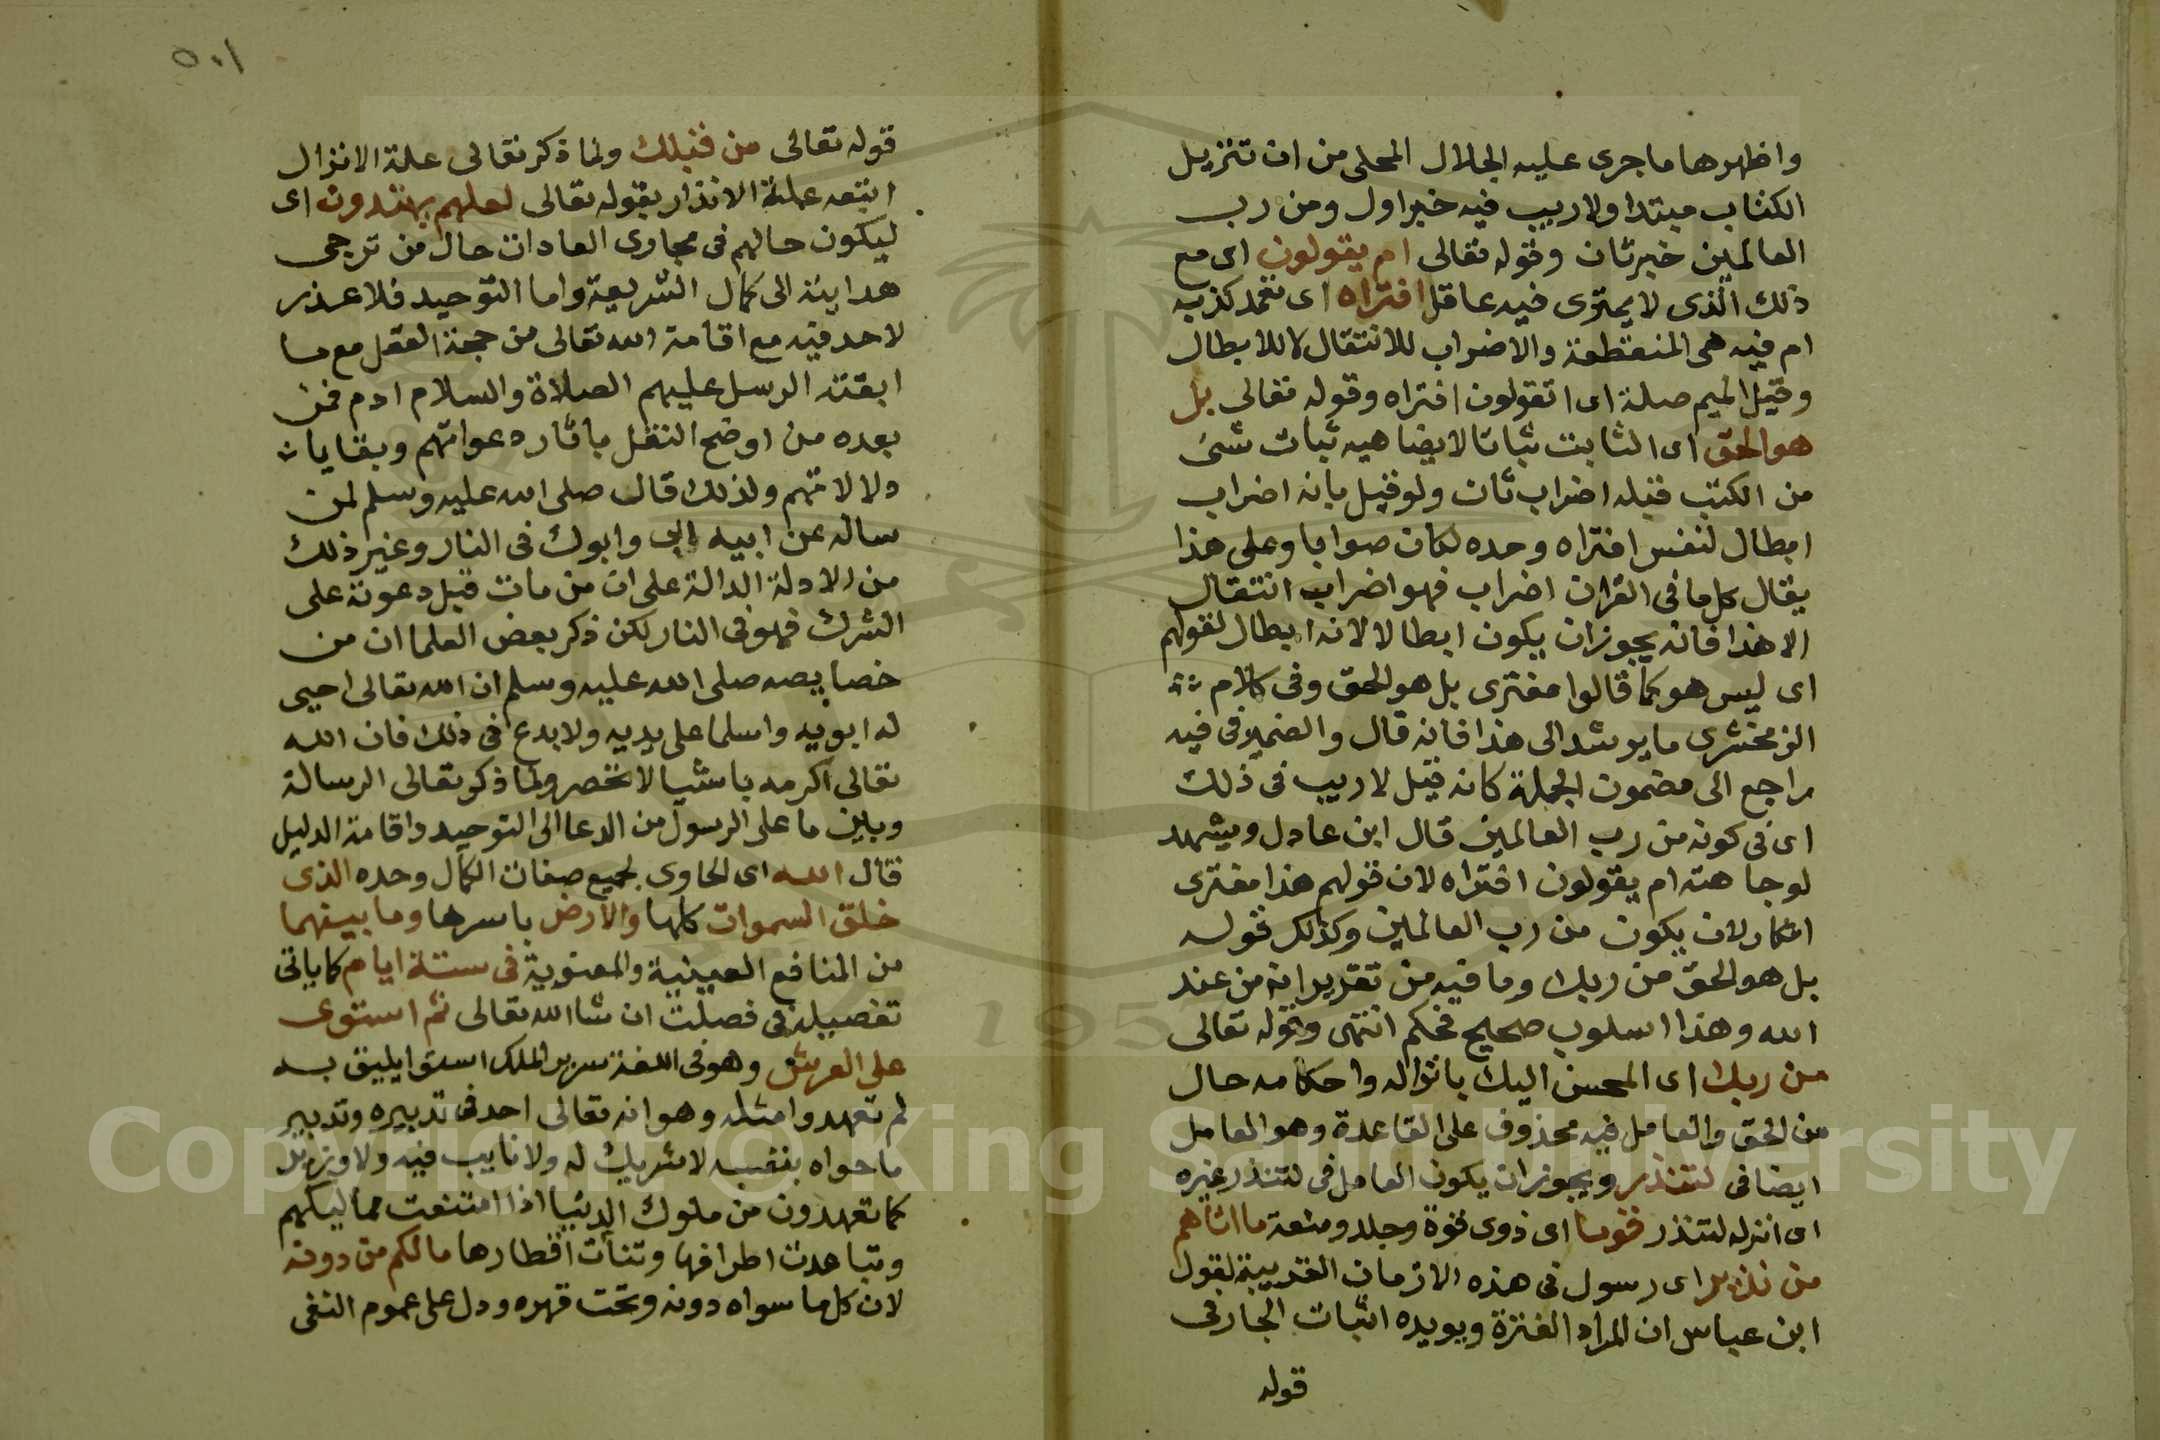 واظهرها ما جرى عليه الجلال المحلى من ان تنزيل
الكتاب مبتدا ولا ريب فيه خبر اول ومن رب
العالمين خبر ثان وقوله تعالى ام يقولون اى مع
ذلك الذى لا يمترى فيه عاقل افتراه اى تعمد كذبه
ام فيه هى المنقطعة والاضراب للانتقال لا للابطال
وقيل الميم صلة اى اتقولون افتراه وقوله تعالى بل
هو الحق اى الثابت ثباتا لا يضاهيه ثبات شئ
من الكتب قبله اضراب ثان ولو قيل بانه اضراب
ابطال لنفس افتراه وحده لكان صوابا وعلى هذا
يقال كل ما فى القران اضراب فهو اضراب انتقال
الا هذا فانه يجوز ان يكون ابطالا لانه ابطال لقولهم
اى ليس هو كما قالوا مفترى بل هو الحق وفى كلام
الزمخشرى ما يرشد الى هذا فانه قال والضمير فى فيه
راجع الى مضمون الجملة كانه قيل لا ريب فى ذلك
اى فى كونه من رب العالمين قال ابن عادل ويشهد
لوجاهته ام يقولون افتراه لان قولهم هذا مفترى
انكار لان يكون من رب العالمين وكذلك قوله
بل هو الحق من ربك وما فيه من تقرير انه من عند
الله وهذا اسلوب صحيح محكم انتهى وقوله تعالى
من ربك اى المحسن اليك بانزاله واحكامه حال
من الحق والعامل فيه محذوف على القاعدة وهو العامل
ايضا فى لتنذر ويجوز ان يكون العامل فى لتنذر غيره
اى انزله لتنذر قوما اى ذوى قوة وجلد ومنعة ما اتاهم
من نذير اى رسول فى هذه الازمان القريبة لقول
ابن عباس ان المراد الفترة ويويده اثبات الجار فى
قوله
٥٠١
قوله تعالى من قبلك ولما ذكر تعالى علة الانزال
اتبعه علة الانذار بقوله تعالى لعلهم يهتدون اى
ليكون حالهم فى مجارى العادات حال من ترجى
هدايته الى كمال الشريعة واما التوحيد فلا عذر
لاحد فيه مع اقامة الله تعالى من حجة العقل مع ما
ابقته الرسل عليهم الصلاة والسلام ادم فمن
بعده من اوضح النقل باثار دعواتهم وبقايا
دلالاتهم ولذلك قال صلى الله عليه وسلم لمن
ساله عن ابيه ابى وابوك فى النار وغير ذلك
من الادلة الدالة على ان من مات قبل دعوته على
الشرك فهو فى النار لكن ذكر بعض العلما ان من
خصايصه صلى الله عليه وسلم ان الله تعالى احيى
له ابويه واسلما على يديه ولا بدع فى ذلك فان الله
تعالى اكرمه باشيا لا تحصر ولما ذكر تعالى الرسالة
وبين ما على الرسول من الدعا الى التوحيد واقامة الدليل
قال الله اى الحاوى لجميع صفات الكمال وحده الذى
خلق السموات كلها والارض باسرها وما بينهما
من المنافع العينية والمعنوية فى ستة ايام كما ياتى
تفصيله فى فصلت ان شا الله تعالى ثم استوى
على العرش وهو فى اللغة سرير الملك استوا يليق به
لم تعهدوا مثله وهو انه تعالى احد فى تدبيره وتدبير
ما حواه بنفسه لا شريك له ولا نايب فيه ولا وزير
كما تعهدون من ملوك الدنيا اذا امتنعت مماليكهم
وتباعدت اطرافها وتنات اقطارها ما لكم من دونه
لان كل ما سواه دونه وتحت قهره ودل على عموم النفى
1957
Copyright © King Saud University